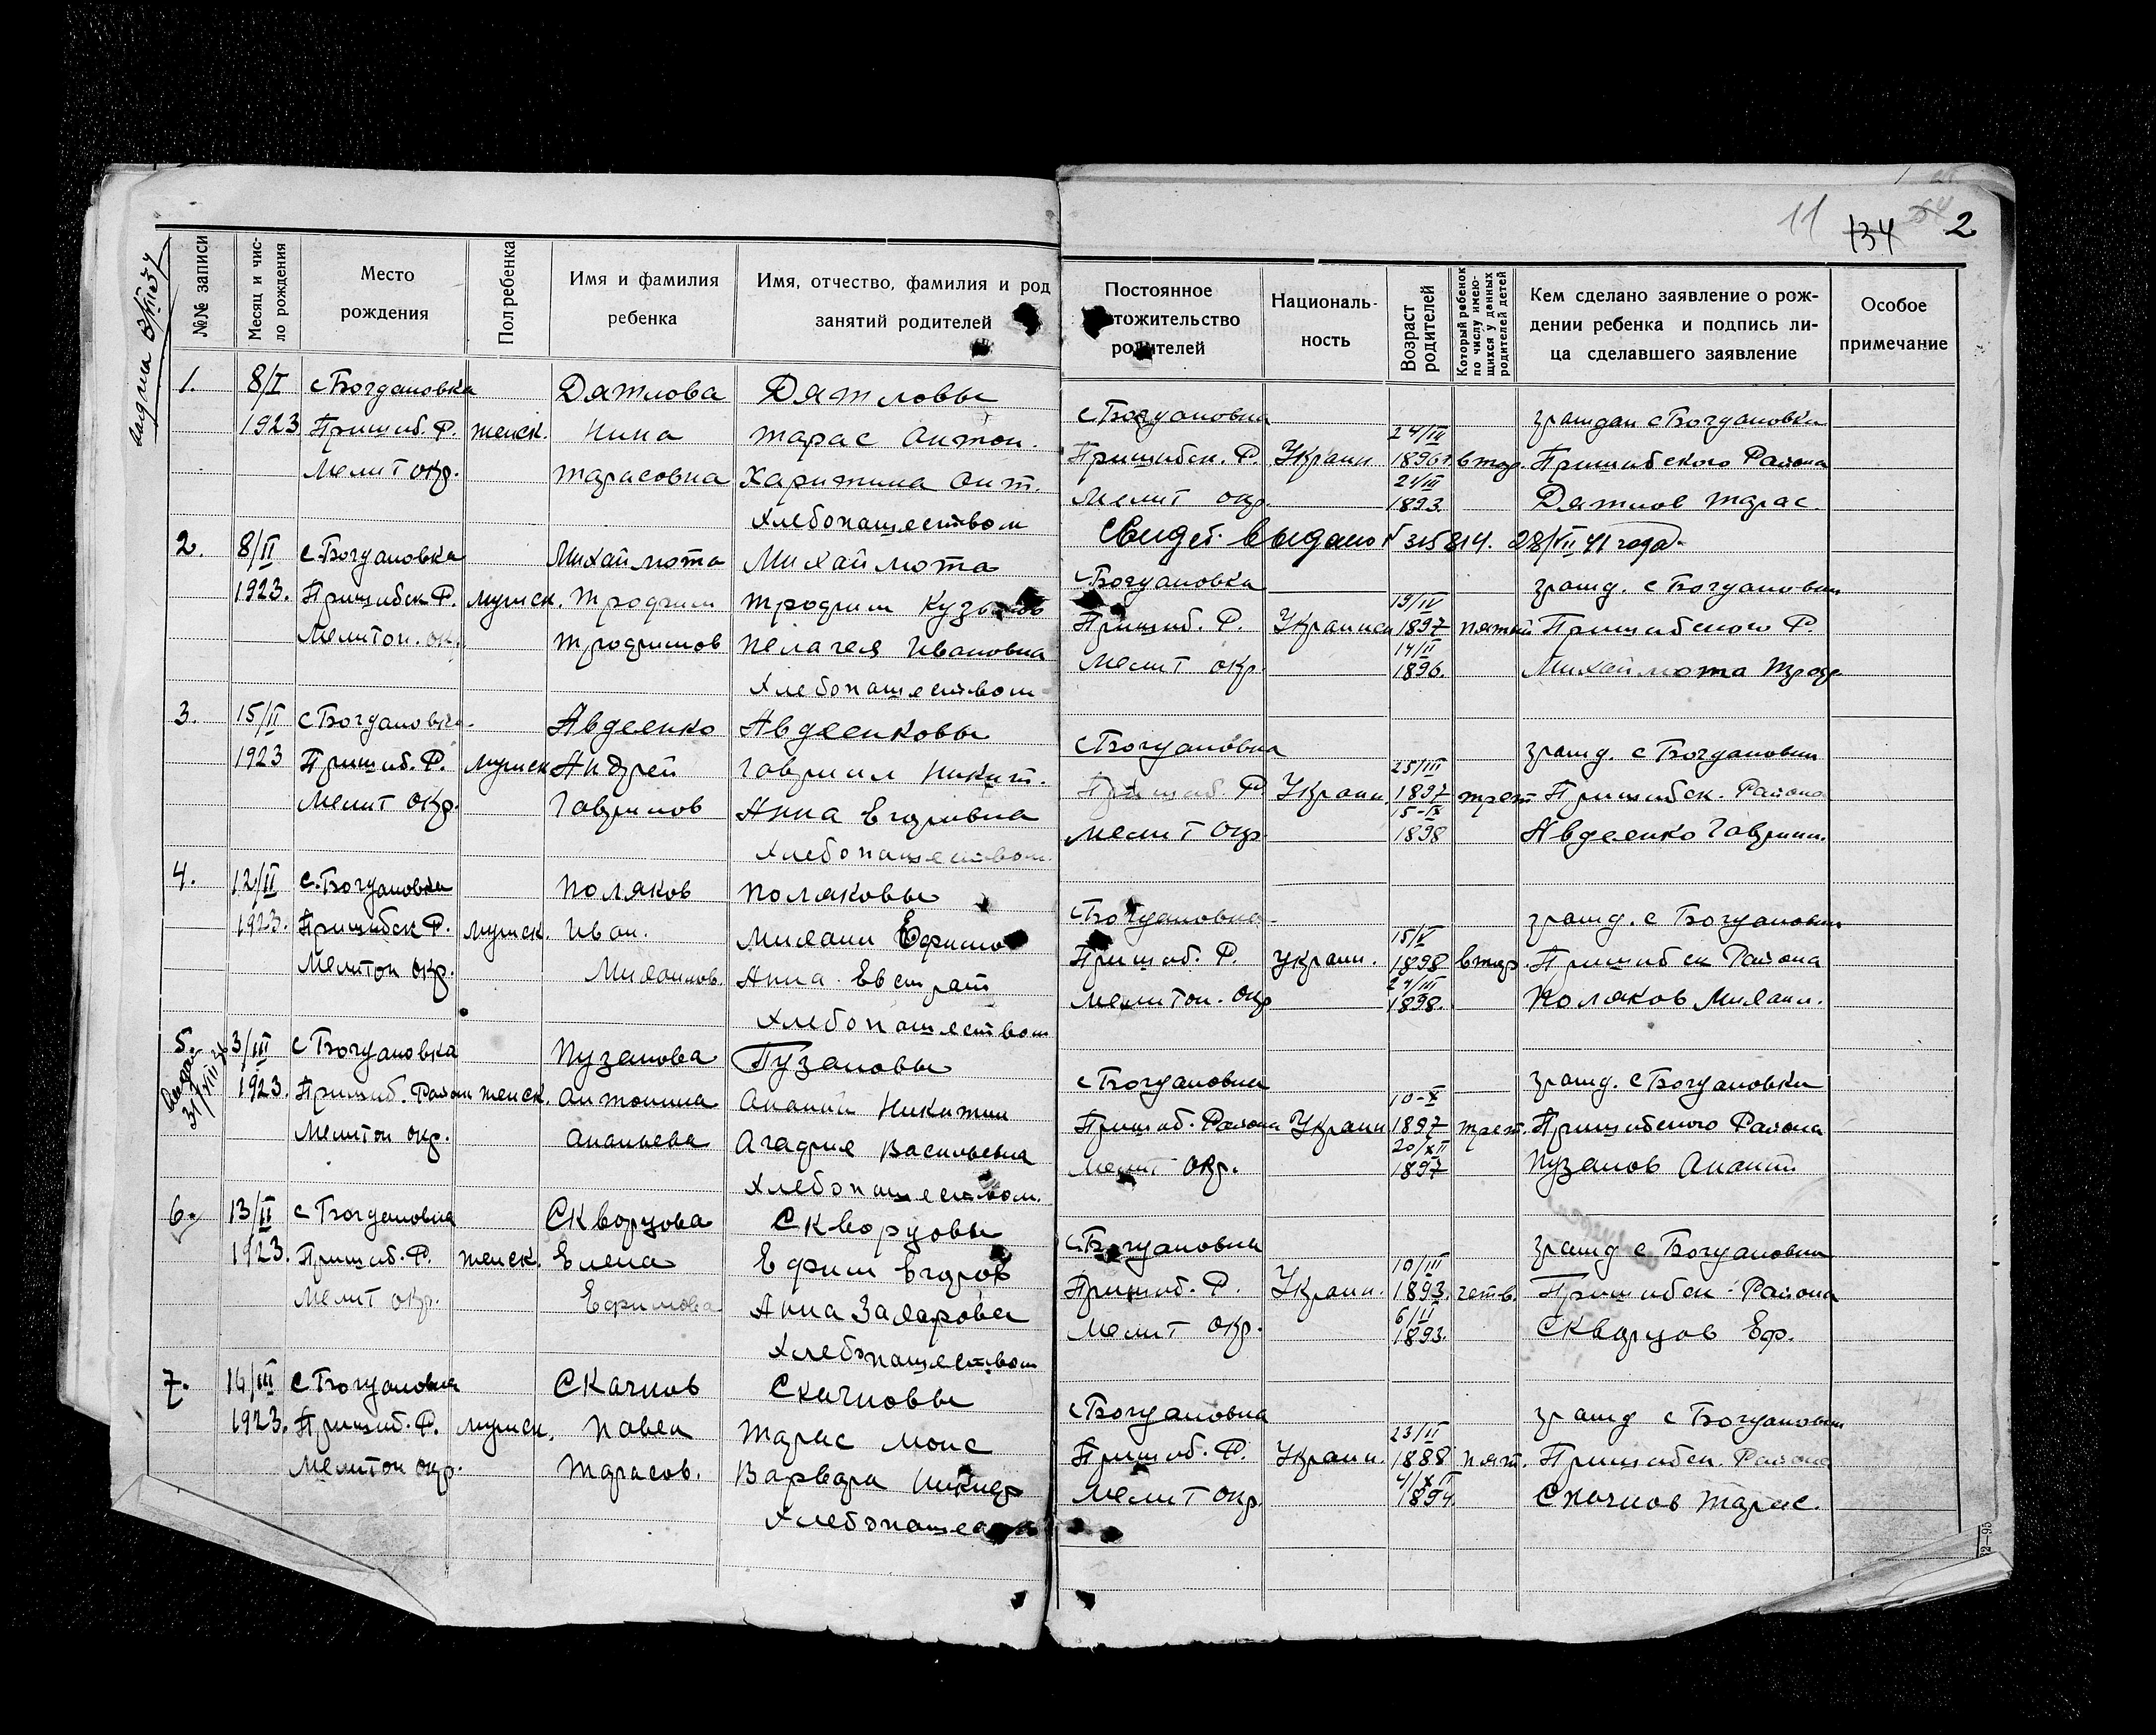 11 134 2
№№ записи
Месяц и число рождения
Место рождения
Пол ребенка
Имя и фамилия ребенка
Имя, отчество, фамилия и род занятий родителей
Постоянное местожительство родителей
Националь-ность
Возраст родителей
Который ребенок по числу имею-щихся у данных родителей детей
Кем сделано заявление о рож-дении ребенка и подпись ли-ца сделавшего заявление
Особое примечание
1. 8/I с Богдановка Дятлова Дятловы с Богдановка граждан с Богдановки
1923 Пришиб. Р. женск. Нина Тарас Антон. Пришибск. Р. Украин 24/III 1896 г. втор. Пришибского Района
Мелит окр. Тарасовна Харитина Ант. Мелит окр. 21/III 1893 Дятлов Тарас.
Хлебопашеством Свидет. выдано № 315814. 28/VII 41 года
2. 8/II с Богдановка Михайлюта Михайлюта с Богдановка гражд. с Богдановки
1923. Пришибск Р. мужск. Трофим Трофим Пришиб. Р. Украинец 19/IV 1897 пятый Пришибского Р.
Мелитоп. окр. Трофимов Пелагея Ивановна Мелит окр. 14/II 1896. Михайлюта Троф.
Хлебопашеством
3. 15/II с Богдановка. Авдеенко Авдеенковы с Богдановка гражд. с Богдановки
1923 Пришиб. Р. мужск Андрей Гавриил Никит. Пришиб. Р. Украин. 25/III 1897 трет Пришибск. Района
Мелит окр. Гаврилов Анна Егоровна Мелит окр 15-IX 1898 Авдеенко Гаврил.
Хлебопашеством.
4. 12/II с. Богдановка Поляков Поляковы с Богдановка гражд. с Богдановки
1923. Пришибск Р. мужск. Иван. Милаил Ефимов Пришиб. Р. украин. 15/V 1898 втор. Пришибск Района
Мелитоп окр. Милаилов. Анна Евстрат Мелитоп. окр 24/III 1898. Поляков Милаил.
Хлебопашеством
5. 3/III с Богдановка Пузанова Пузановы с Богдановка гражд. с Богдановки
31/VIII 36
1923. Пришиб. Район женск. Антонина Ананий Никитин Пришиб. Района Украин 10-X 1897 трет. Пришибского Района
Мелитоп окр. Ананьева Агафия Васильевна Мелит окр. 20/XII 1897 Пузанов Ананий
Хлебопашеством.
6. 13/II с Богдановка Скворцова Скворцовы с Богдановка гражд с Богдановки
1923. Пришиб. Р. женск. Елена Ефим Егоров Пришиб. Р. Украин. 10/III 1893. четв. Пришибск. Района
Мелит окр. Ефимова Анна Заларова Мелит окр. 6/II 1893. Скворцов Еф.
Хлебопашеством
7. 16/III с Богдановка Скачков Скачковы с Богдановка гражд с Богдановки
1923. Пришиб. Р. мужск. Павел Тарас Моис Пришиб. Р. Украин. 23/II 1888 пят. Пришибск Района
Мелитоп окр. Тарасов. Варвара Никиф Мелит окр. 4/XII 1894. Скачков Тарас.